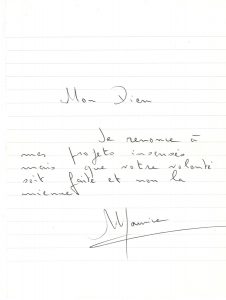 Mon Dieu
Je renonce à
mes projets insensés
mais que votre volonté
soit faite et non la
mienne
Maurice